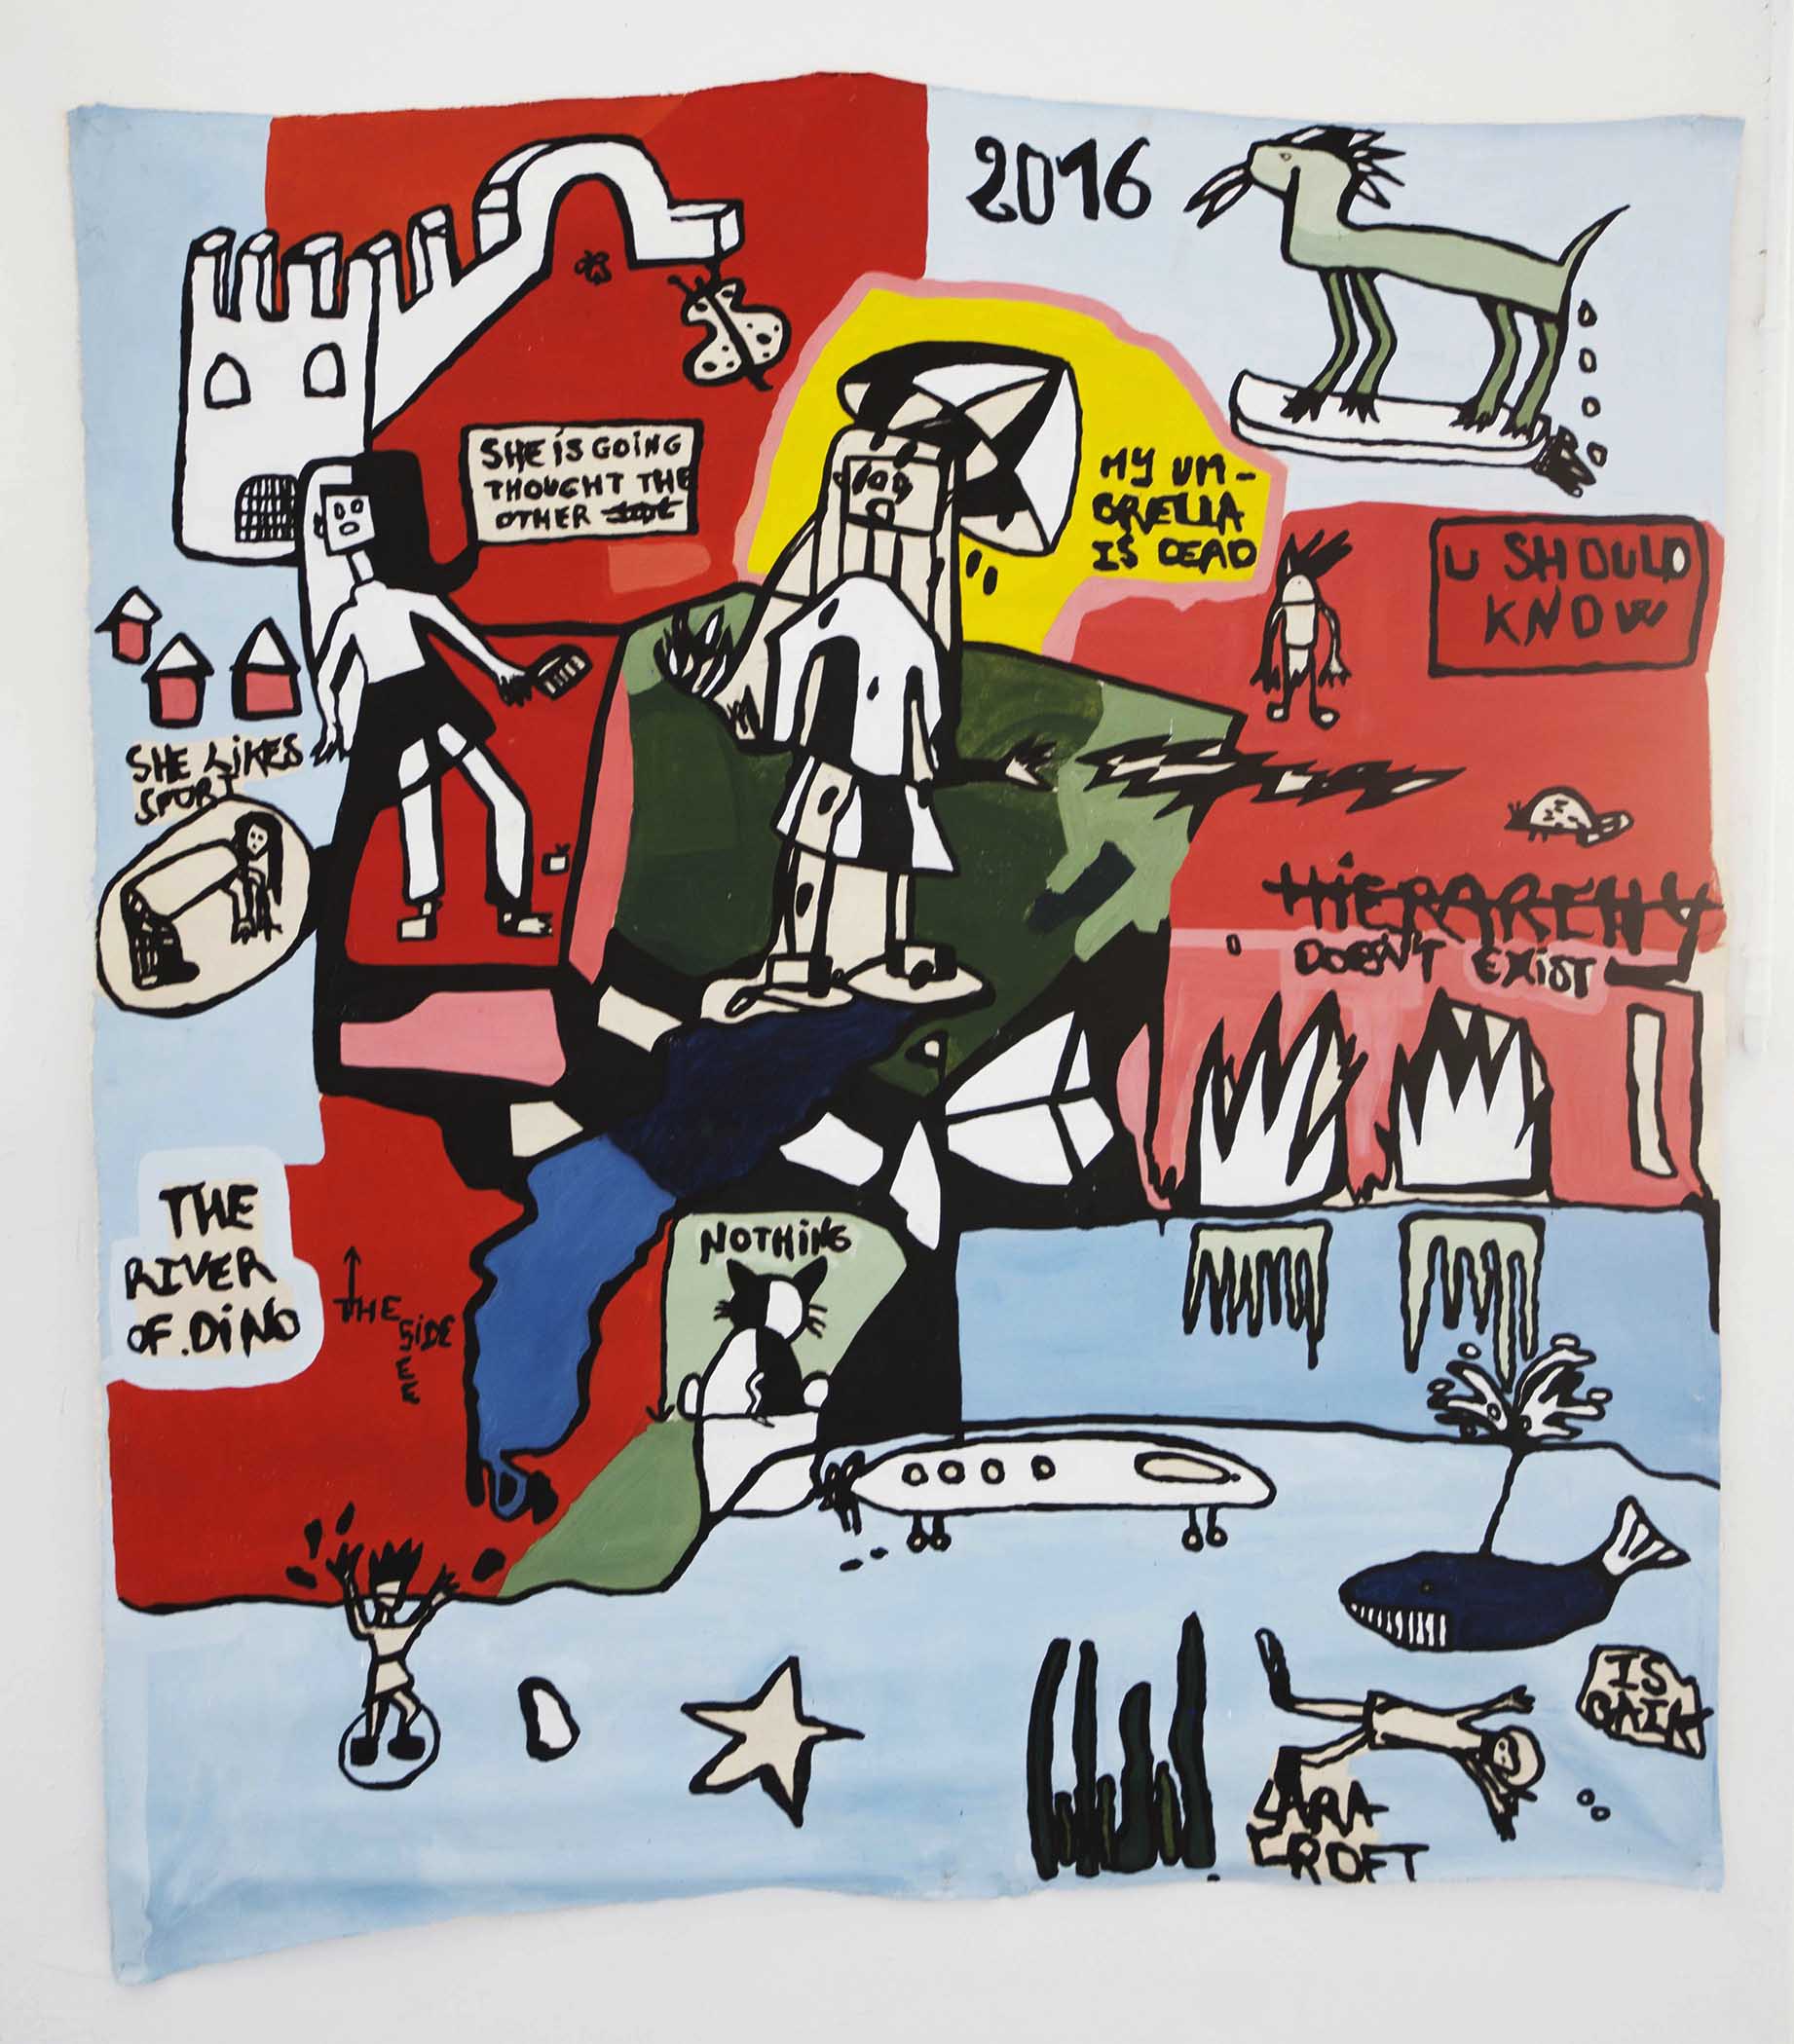 2016
SHE iS GOiNG
THOUGHT THE
OTHER
MY UM-
BRELLA
IS DEAD
U SHOULD
KNOW
SHE LiKES
SPORT
HiERARCHY
DOESN'T EXiST
THE
RiVER
OF.DiNO
THE
SiDE
E
E
NOTHiNG
IS
BACK
LARA
CROFT